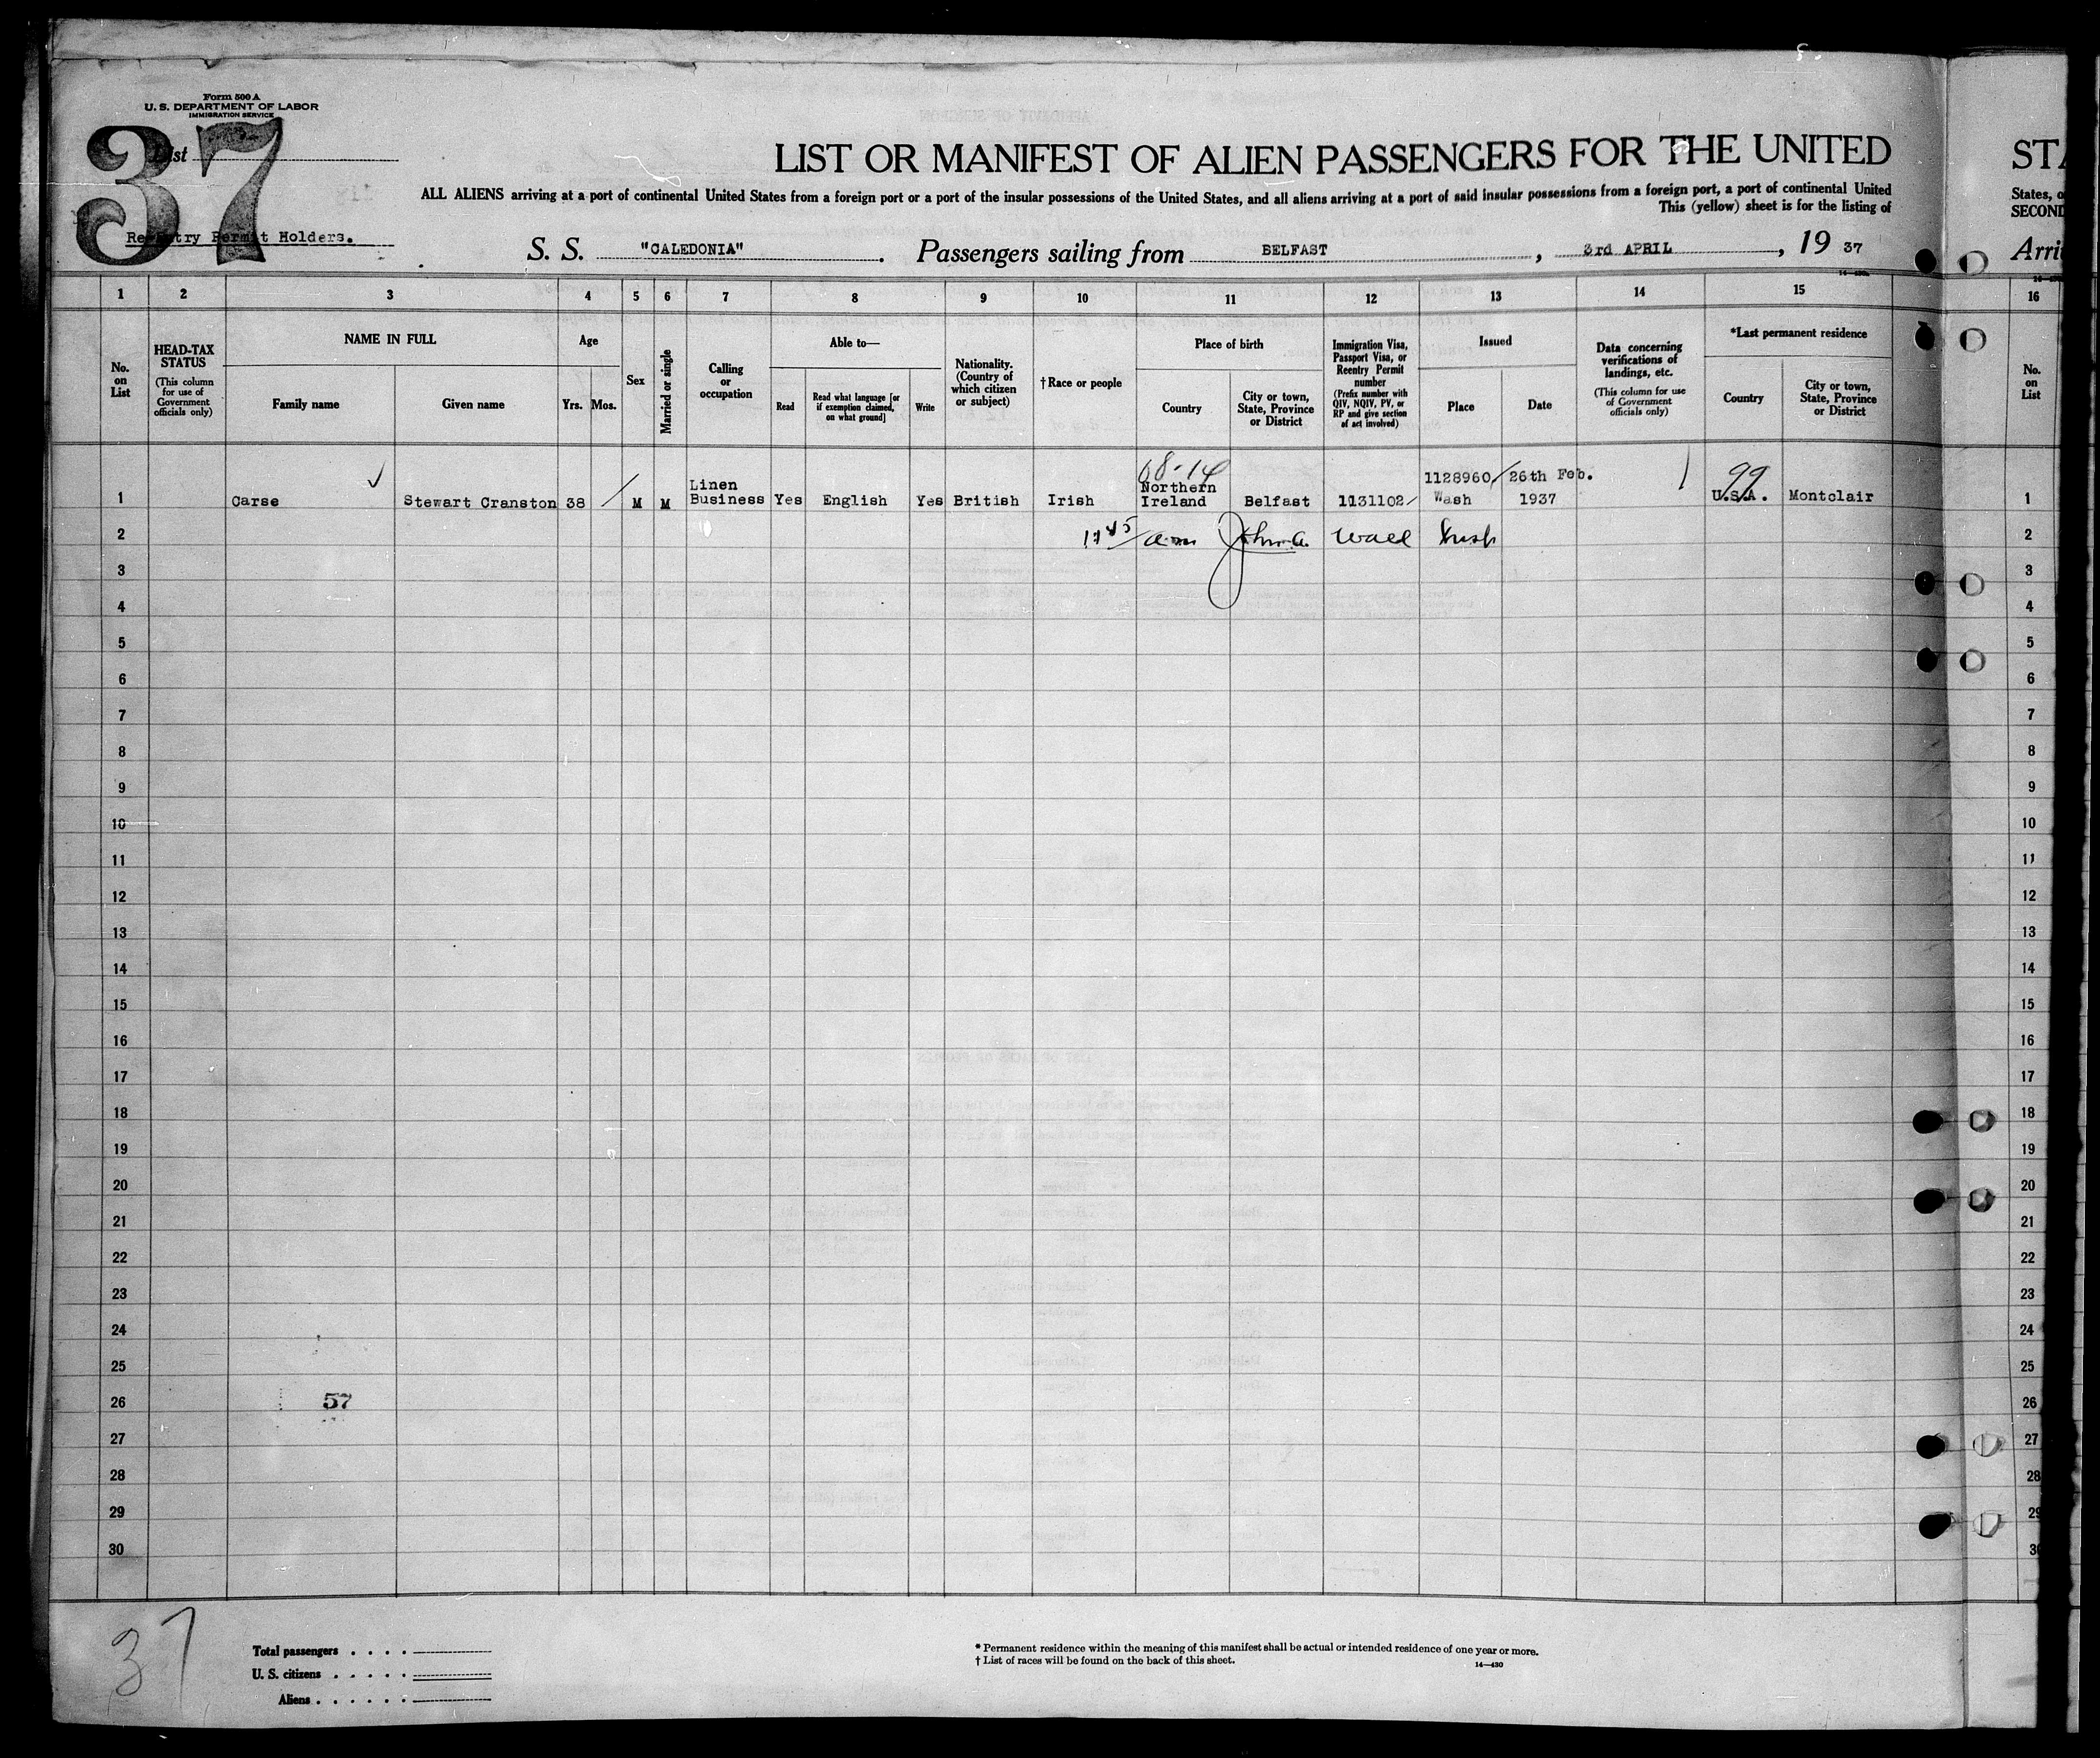 Form 500 A
U. S. DEPARTMENT OF LABOR
IMMIGRATION SERVICE
37
List
Re-Entry Permit Holders.
LIST OR MANIFEST OF ALIEN PASSENGERS FOR THE UNITED
ALL ALIENS arriving at a port of continental United States from a foreign port or a port of the insular possessions of the United States, and all aliens arriving at a port of said insular possessions from a foreign port, a port of continental United
This (yellow) sheet is for the listing of
S. S. "CALEDONIA". Passengers sailing from BELFAST, 3rd APRIL, 19 37
STA
States, o
SECOND
Arri
1 2 3 4 5 6 7 8 9 10 11 12 13 14 15 16
No. on List
HEAD-TAX STATUS
(This column for use of Government officials only)
NAME IN FULL
Family name
Given name
Age
Yrs. Mos.
Sex
Married or single
Calling or occupation
Able to—
Read
Read what language [or if exemption claimed, on what ground]
Write
Nationality. (Country of which citizen or subject)
†Race or people
Place of birth
Country
City or town, State, Province or District
Immigration Visa, Passport Visa, or Reentry Permit number
(Prefix number with QIV, NQIV, PV, or RP and give section of act involved)
Issued
Place
Date
Data concerning verifications of landings, etc.
(This column for use of Government officials only)
*Last permanent residence
Country
City or town, State, Province or District
No. on List
68-14
1128960/ 26th Feb. 99
1 Carse Stewart Cranston 38 M M Linen Business Yes English Yes British Irish Northern Ireland Belfast 1131102/ Wash 1937 U.S.A. Montclair 1
2 11 45/am John A. Wall 2
3 3
4 4
5 5
6 6
7 7
8 8
9 9
10 10
11 11
12 12
13 13
14 14
15 15
16 16
17 17
18 18
19 19
20 20
21 21
22 22
23 23
24 24
25 25
26 57 26
27 27
28 28
29 29
30 3
37
Total passengers . . . .
U. S. citizens . . . . .
Aliens . . . . . .
* Permanent residence within the meaning of this manifest shall be actual or intended residence of one year or more.
† List of races will be found on the back of this sheet.
14—430